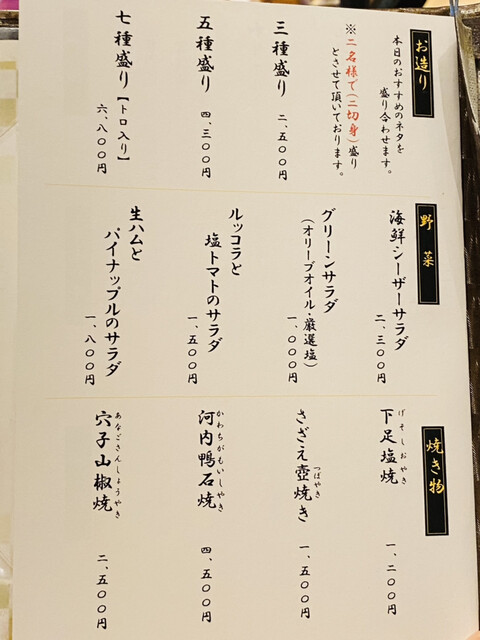 お造り
本日のおすすめのネタを
盛り合わせます。
※二名様で(二切身)盛り
とさせて頂いております。
三種盛り
二、五〇〇円
五種盛り
四、三〇〇円
七種盛り【トロ入り】
六、八〇〇円
野菜
海鮮シーザーサラダ
二、三〇〇円
グリーンサラダ
(オリーブオイル・厳選塩)
一、〇〇〇円
ルッコラと
塩トマトのサラダ
一、五〇〇円
生ハムと
パイナップルのサラダ
一、八〇〇円
焼き物
げそしおやき
下足塩焼
一、二〇〇円
つぼやき
さざえ壺焼き
一、五〇〇円
かわちがもいしやき
河内鴨石焼
四、五〇〇円
あなごさんしょうやき
穴子山椒焼
二、五〇〇円